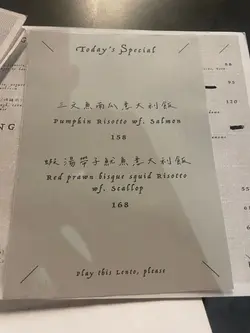 Today's Special
三文魚南瓜意大利飯
Pumpkin Risotto wf. Salmon
158
蝦湯帶子魷魚意大利飯
Red prawn bisque squid Risotto
wf. Scallop
168
Play this Lento, please